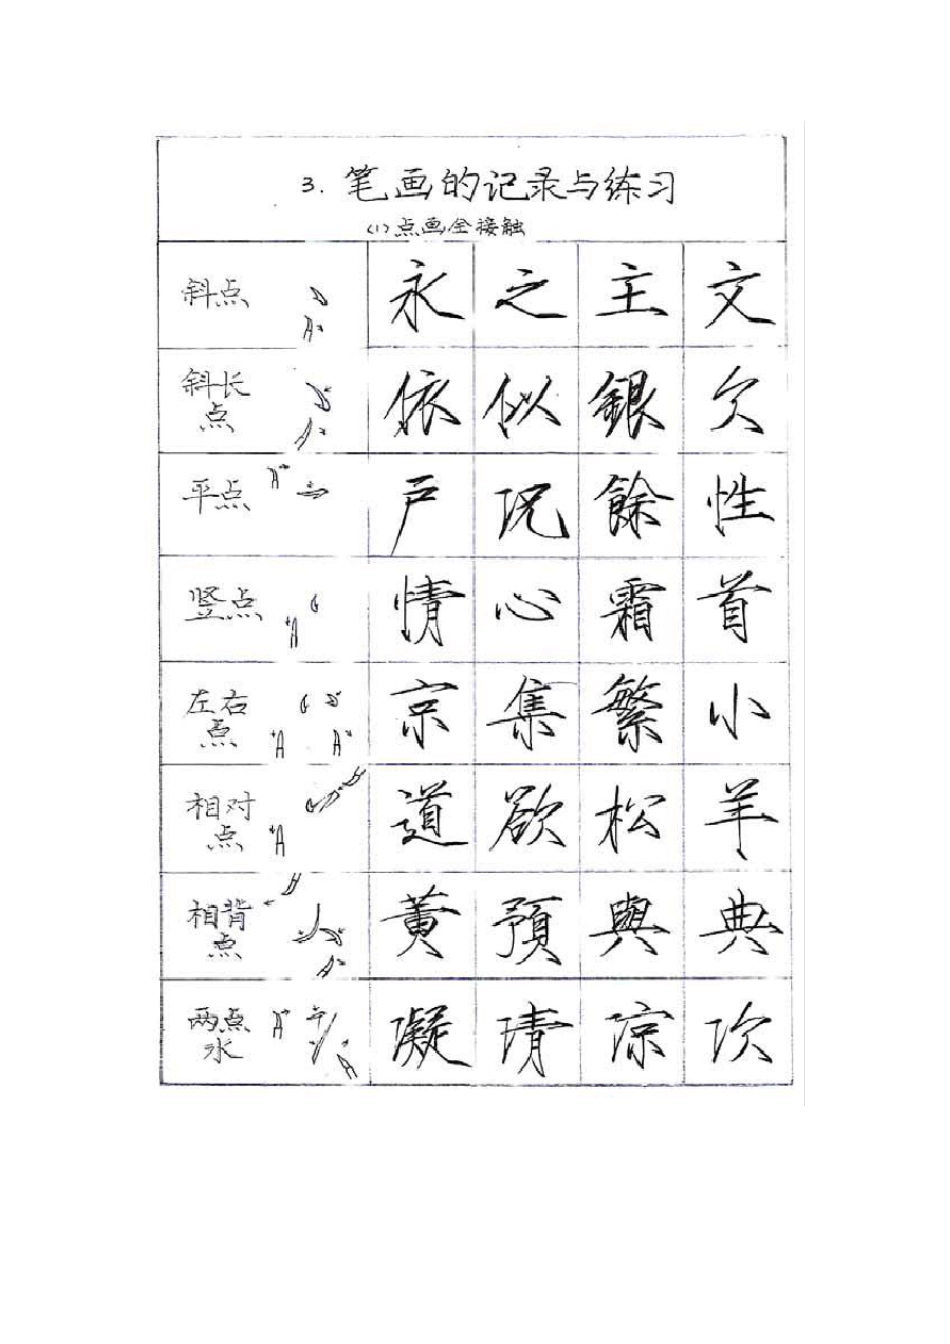 3. 笔画的记录与练习
(1)点画全接触
斜点 永 之 主 文
斜长点 依 似 銀 欠
平点 户 况 餘 性
竖点 情 心 霜 首
左右点 京 集 繁 小
相对点 道 欲 松 羊
相背点 黄 預 與 典
两点水 凝 清 凉 次